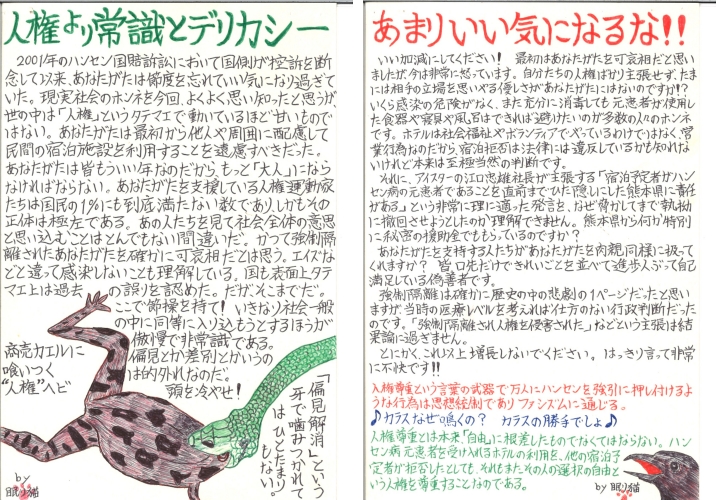 人権より常識とデリカシー
2001年のハンセン国賠訴訟において国側が控訴を断
念して以来、あなたがたは節度を忘れていい気になり過ぎて
いた。現実社会のホンネを今回、よくよく思い知ったと思うが
世の中は「人権」というタテマエで動いているほど甘いもので
はない。あなたがたは最初から他人や周囲に配慮して
民間の宿泊施設を利用することを遠慮すべきだった。
あなたがたは皆もういい年なのだから、もっと「大人」になら
なければならない。あなたがたを支援している人権運動家
たちは国民の1%にも到底満たない数であり、しかもその
正体は極左である。あの人たちを見て社会全体の意思
と思い込むことはとんでもない間違いだ。かつて強制隔
離されたあなたがたを確かに可哀相だとは思う。エイズな
どと違って感染しないことも理解している。国も表面上タテ
マエ上は過去の誤りを認めた。だがそこまでだ。
ここで節操を持て!いきなり社会一般
の中に同等に入り込もうとするほうが
傲慢で非常識である。
偏見とか差別とかいうの
は的外れなのだ。
頭を冷やせ!
商売カエルに
喰いつく
“人権”ヘビ
「偏見解消」という
牙で噛みつかれて
はひとたまり
もない。
by
眠り猫
あまりいい気になるな!!
いい加減にしてください! 最初はあなたがたを可哀相だと思い
ましたが今は非常に怒っています。自分たちの人権ばかり主張せず、たま
には相手の立場を思いやる優しさがあなたがたにはないのですか!?
いくら感染の危険がなく、また充分に消毒しても元患者が使用し
た食器や寝具や風呂はできれば避けたいのが多数の人々のホンネ
です。ホテルは社会福祉やボランティアでやっているわけではなく、営
業行為なのだから、宿泊拒否は法律には違反しているかも知れな
いけれど本来は至極当然の判断です。
それに、アイスターの江口忠雄社長が主張する「宿泊予定者がハン
セン病の元患者であることを直前までひた隠しにした熊本県に責任
がある」という非常に理に適った発言を、なぜ脅かしてまで執拗
に撤回させようとしたのか理解できません。熊本県から何か特別
に秘密の援助金でももらっているのですか?
あなたがたを支持する人たちがあなたがたを肉親同様に扱って
くれますか? 皆口先だけできれいごとを並べて進歩人ぶって自己
満足している偽善者です。
強制隔離は確かに歴史の中の悲劇の1ページだったと思い
ますが、当時の医療レベルを考えれば仕方のない行政判断だった
のです。「強制隔離され人権を侵害された」などという主張は結
果論に過ぎません。
とにかく、これ以上増長しないでください。はっきり言って非常
に不快です!!
人権尊重という言葉の武器で万人にハンセンを強引に押し付けるよ
うな行為は思想統制でありファシズムに通じる。
♪カラスなぜ鳴くの? カラスの勝手でしょ♪
人権尊重とは本来「自由」に根差したものでなくてはならない。ハン
セン病元患者を受け入れるホテルの利用を、他の宿泊予
定者が拒否したとしても、それもまたその人の選択の自由と
いう人権を尊重することなのである。
by 眠り猫